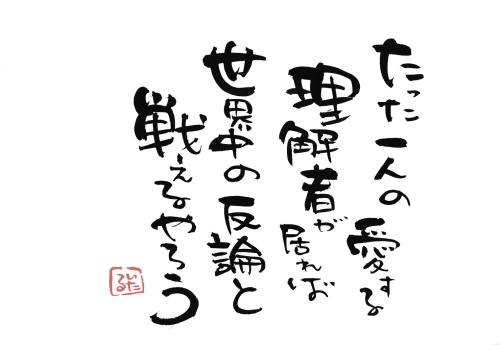 たった一人の愛する
理解者が居れば
世界中の反論と
戦えるやろう